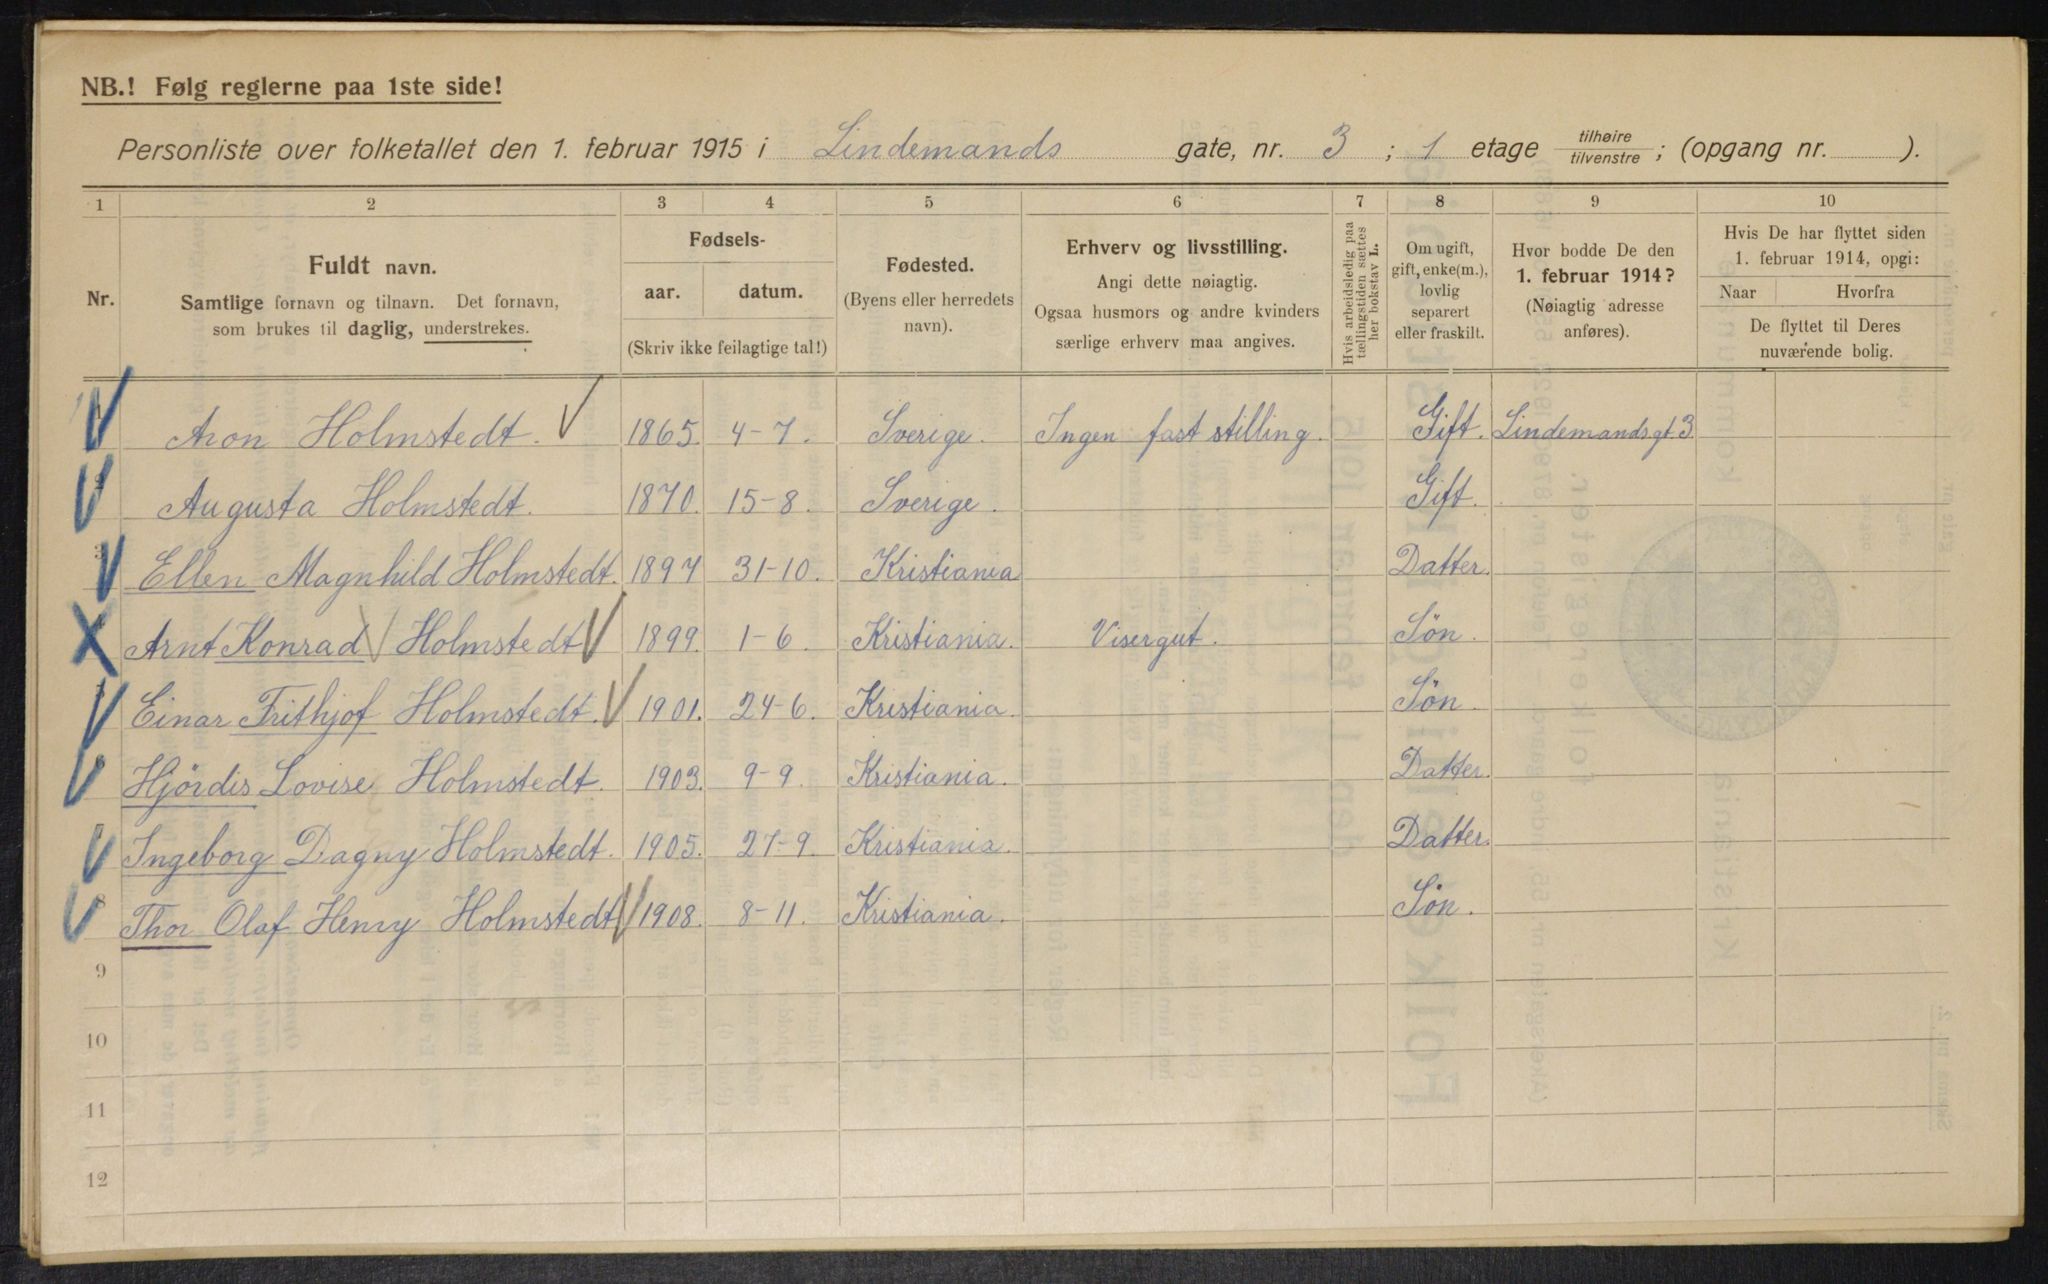 NB.! Følg reglerne paa 1ste side!
Personliste over folketallet den 1. februar 1915 i Lindemands gate, nr. 3 ; 1 etage tilhøire / tilvenstre ; (opgang nr. ).
1 2 3 4 5 6 7 8 9 10
Nr.
Fuldt navn.
Samtlige fornavn og tilnavn. Det fornavn,
som brukes til daglig, understrekes.
Fødsels-
aar. datum.
(Skriv ikke feilagtige tal!)
Fødested.
(Byens eller herredets
navn).
Erhverv og livsstilling.
Angi dette nøiagtig.
Ogsaa husmors og andre kvinders
særlige erhverv maa angives.
Hvis arbeidsledig paa
tællingstiden sættes
her bokstav L.
Om ugift,
gift, enke(m.),
lovlig
separert
eller fraskilt.
Hvor bodde De den
1. februar 1914?
(Nøiagtig adresse
anføres).
Hvis De har flyttet siden
1. februar 1914, opgi:
Naar Hvorfra
De flyttet til Deres
nuværende bolig.
1 Aron Holmstedt. 1865. 4-7. Sverige. Ingen fast stilling. Gift. Lindemandsgt. 3
2 Augusta Holmstedt. 1870. 15-8. Sverige. Gift.
3 Ellen Magnhild Holmstedt. 1897 31-10. Kristiania Datter.
4 Arnt Konrad Holmstedt 1899. 1-6. Kristiania. Visergut. Søn.
5 Einar Frithjof Holmstedt. 1901. 24-6. Kristiania. Søn.
6 Hjördis Lovise Holmstedt. 1903. 9-9. Kristiania. Datter.
7 Ingeborg Dagny Holmstedt. 1905. 27-9. Kristiania. Datter.
8 Thor Olaf Henry Holmstedt 1908. 8-11. Kristiania. Søn.
9
10
11
12